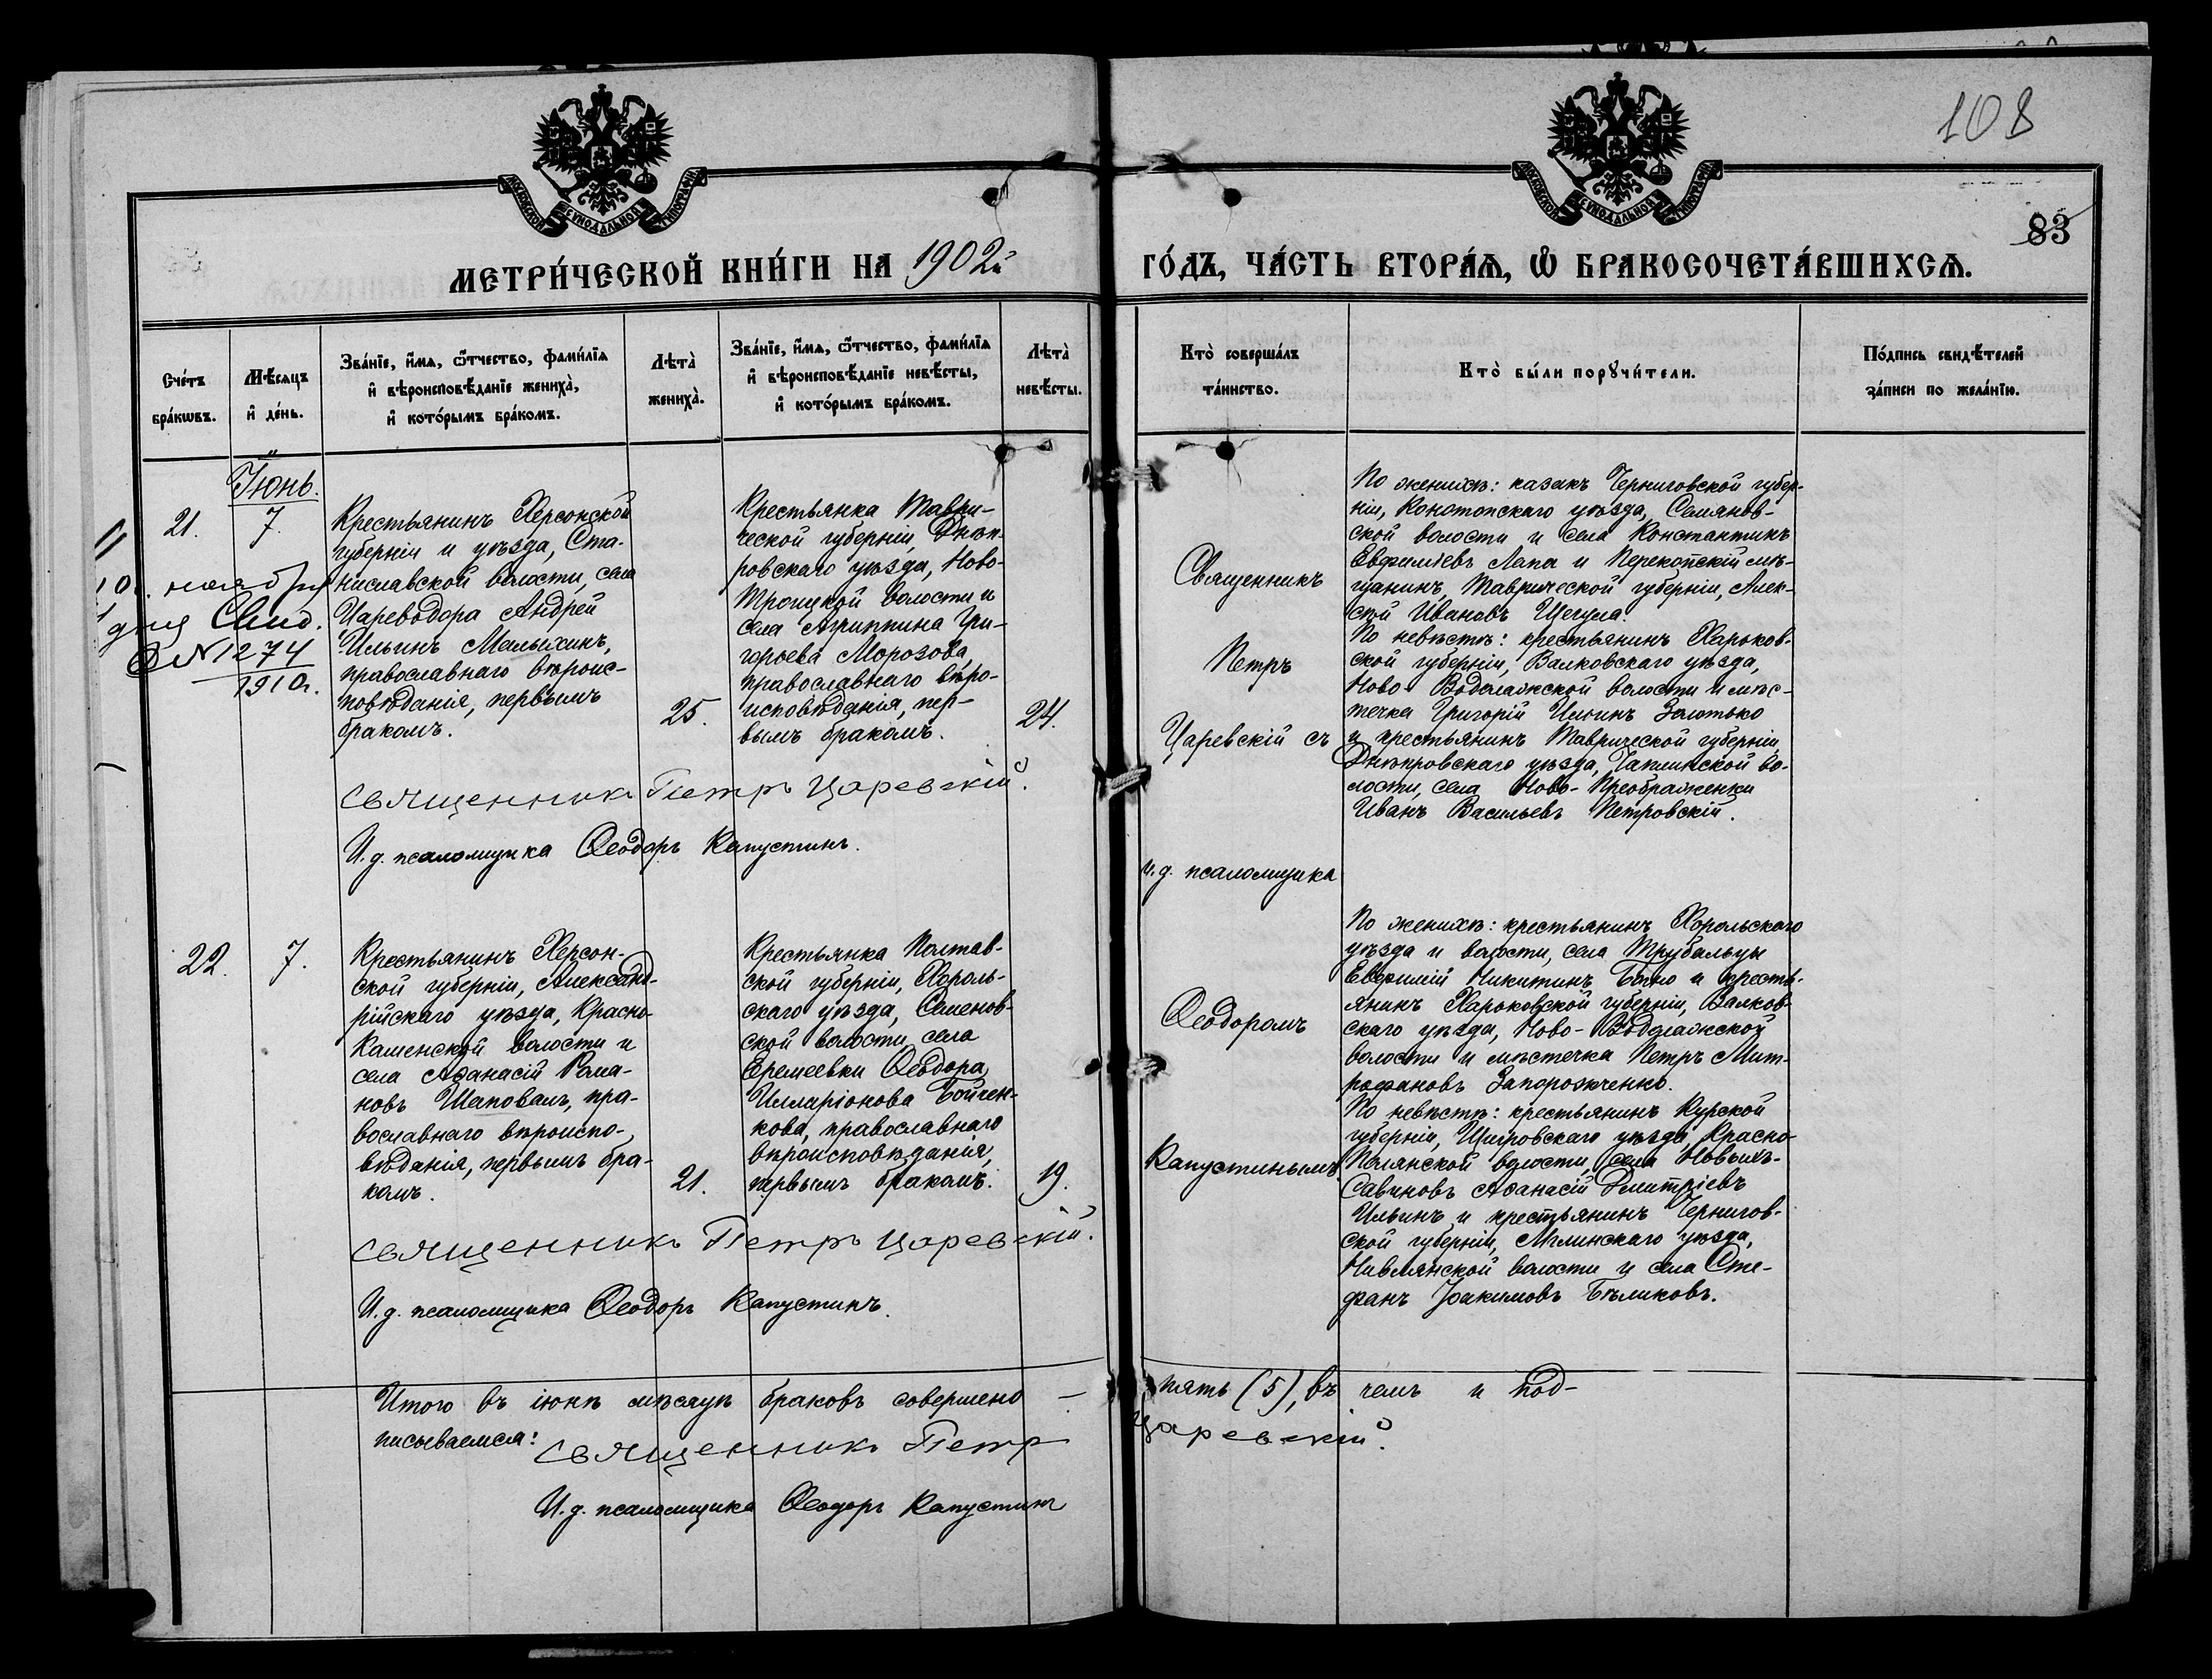 108
83
МОСКОВСКОЙ СУНОДАЛЬНОЙ ТИПОГРАФІИ
МОСКОВСКОЙ СУНОДАЛЬНОЙ ТИПОГРАФІИ
МЕТРИ́ЧЕСКОЙ КНИ́ГИ НА 1902й
ГО́ДЪ, ЧА́СТЬ ВТОРА́Я, Ѡ҆ БРАКОСОЧЕТА́ВШИХСЯ.
Сче́тъ бра́кѡвъ.
Мѣ́сяцъ и҆ де́нь.
Зва́нїе, и҆́мѧ, ѻ҆́тчество, фами́лїѧ и҆ вѣроисповѣ́данїе жениха̀, и҆ кото́рымъ бра́комъ.
Лѣта̀ жениха̀.
Зва́нїе, и҆́мѧ, ѻ҆́тчество, фами́лїѧ и҆ вѣроисповѣ́данїе невѣ́сты, и҆ кото́рымъ бра́комъ.
Лѣта̀ невѣ́сты.
Кто̀ соверша́лъ та́инство.
Кто̀ бы́ли порꙋчи́тели.
По́дпись свидѣ́телей за́писи по жела́нїю.
Іюнь.
21.
7.
10. ноября
дня Свид.
№1274
1910г.
Крестьянинъ Херсонской
губерніи и уѣзда, Ста-
ниславской волости, села
Цареводора Андрей
Ильинъ Малыхинъ,
православнаго вѣроис-
повѣданія, первымъ
бракомъ.
25.
Крестьянка Таври-
ческой губерніи, Днѣп-
ровскаго уѣзда, Ново-
Троицкой волости и
села Агриппина Гри-
горьева Морозова,
православнаго вѣро-
исповѣданія, пер-
вымъ бракомъ.
24.
Священникъ
Петръ
Царевскій съ
и.д. псаломщика
Ѳеодоромъ
Капустинымъ.
По женихѣ: казакъ Черниговской губер-
ніи, Конотопскаго уѣзда, Семянов-
ской волости и села Константинъ
Евфиміевъ Лапа и Перекопскій мѣ-
щанинъ, Таврической губерніи, Алек-
сѣй Ивановъ Щегула.
По невѣстѣ: крестьянинъ Харьков-
ской губерніи, Валковскаго уѣзда,
Ново-Водолажской волости и мѣс-
течка Григорій Ильинъ Золотько
и крестьянинъ Таврической губерніи,
Днѣпровскаго уѣзда, Чаплинской во-
лости, села Ново-Преображенки
Иванъ Васильевъ Петровскій.
Священникъ Петръ Царевскій.
И.д. псаломщика Ѳеодоръ Капустинъ.
22.
7.
Крестьянинъ Херсон-
ской губерніи, Александ-
рійскаго уѣзда, Красно-
Каменской волости и
села Аѳанасій Рома-
новъ Шаповалъ, пра-
вославнаго вѣроиспо-
вѣданія, первымъ бра-
комъ.
21.
Крестьянка Полтав-
ской губерніи, Хороль-
скаго уѣзда, Семенов-
ской волости, села
Еремеевки Ѳеодора
Илларіонова Бойчен-
кова, православнаго
вѣроисповѣданія,
первымъ бракомъ.
19.
По женихѣ: крестьянинъ Хорольскаго
уѣзда и волости, села Трубальцы
Евфимій Никитинъ и кресть-
янинъ Харьковской губерніи, Валков-
скаго уѣзда, Ново-Водолажской
волости и мѣстечка Петръ Мит-
рофановъ Запорожченко.
По невѣстѣ: крестьянинъ Курской
губерніи, Щигровскаго уѣзда, Красно-
Полянской волости, села Новыхъ-
Савиновъ Аѳанасій Дмитріевъ
Ильинъ и крестьянинъ Чернигов-
ской губерніи, Мглинскаго уѣзда,
Нивлянской волости и села Сте-
фанъ Іоакимовъ Бѣликовъ.
Священникъ Петръ Царевскій.
И.д. псаломщика Ѳеодоръ Капустинъ.
Итого въ іюнѣ мѣсяцѣ браковъ совершено – пять (5), въ чемъ и под-
писываемся: Священникъ Петръ Царевскій.
И.д. псаломщика Ѳеодоръ Капустинъ